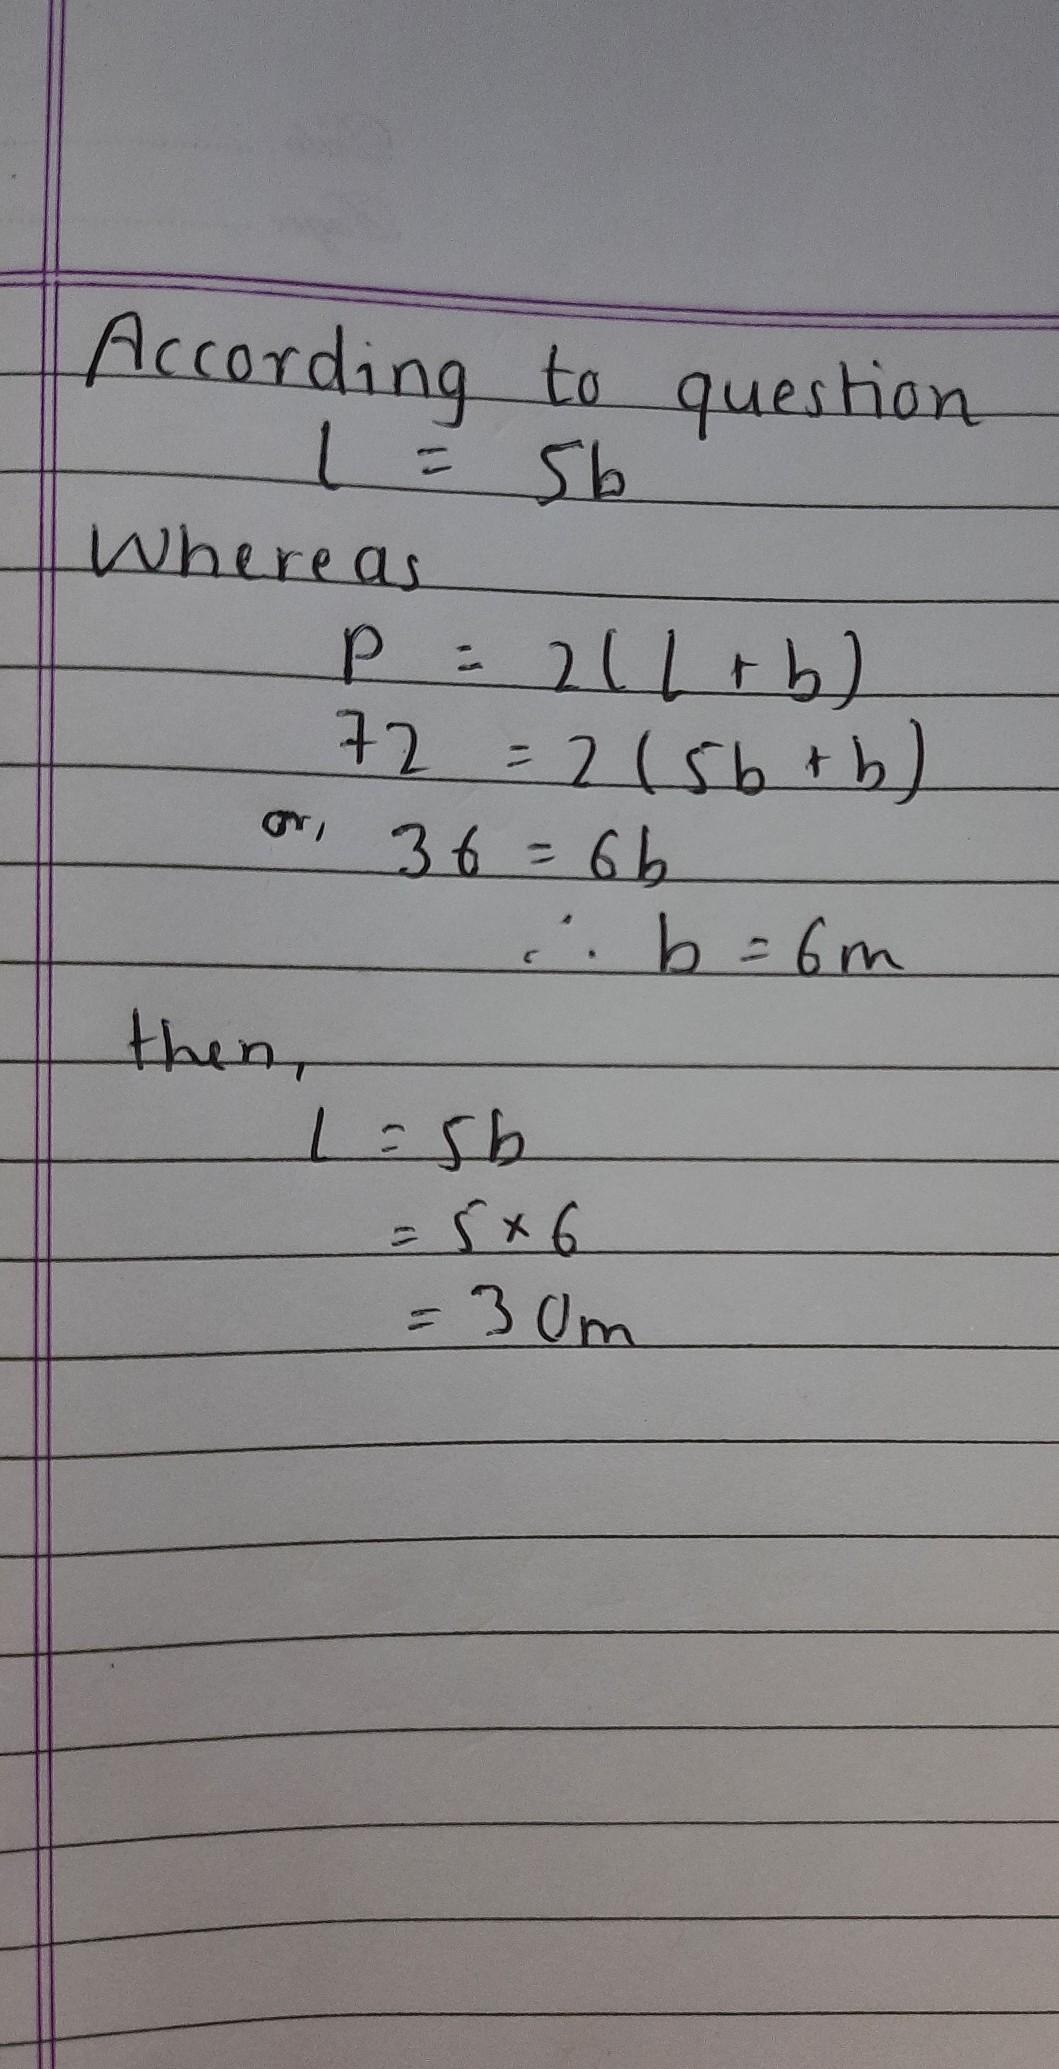 According to question
l = 5b
Whereas
P = 2(l + b)
72 = 2(5b + b)
or, 36 = 6b
∴ b = 6m
then,
l = 5b
= 5 × 6
= 30m